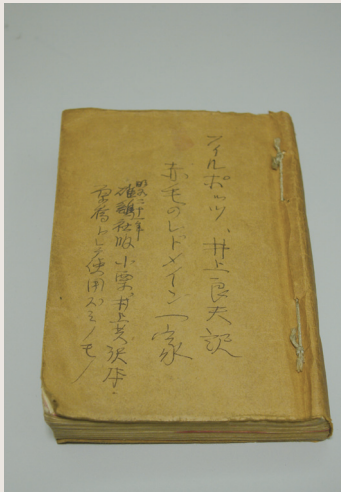 フィルポッツ、井上良夫訳
赤毛のレドメイン一家
昭和二十一年
雄鶏社版 小栗、井上共訳本・
原稿トシテ使用ズミノモノ